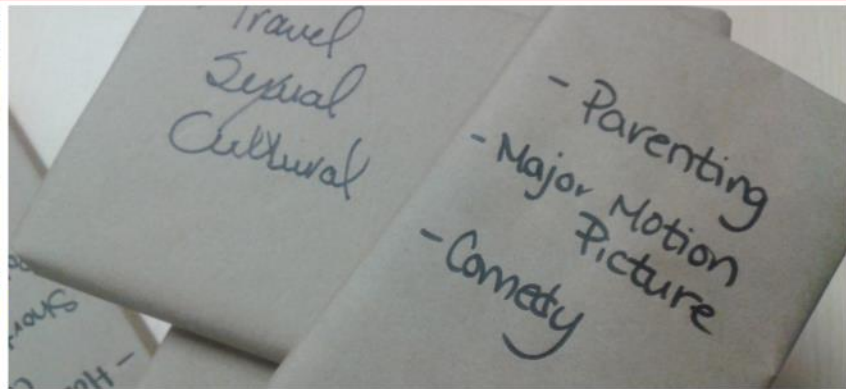 Travel
Sexual
Cultural
- Parenting
- Major Motion
Picture
- Comedy